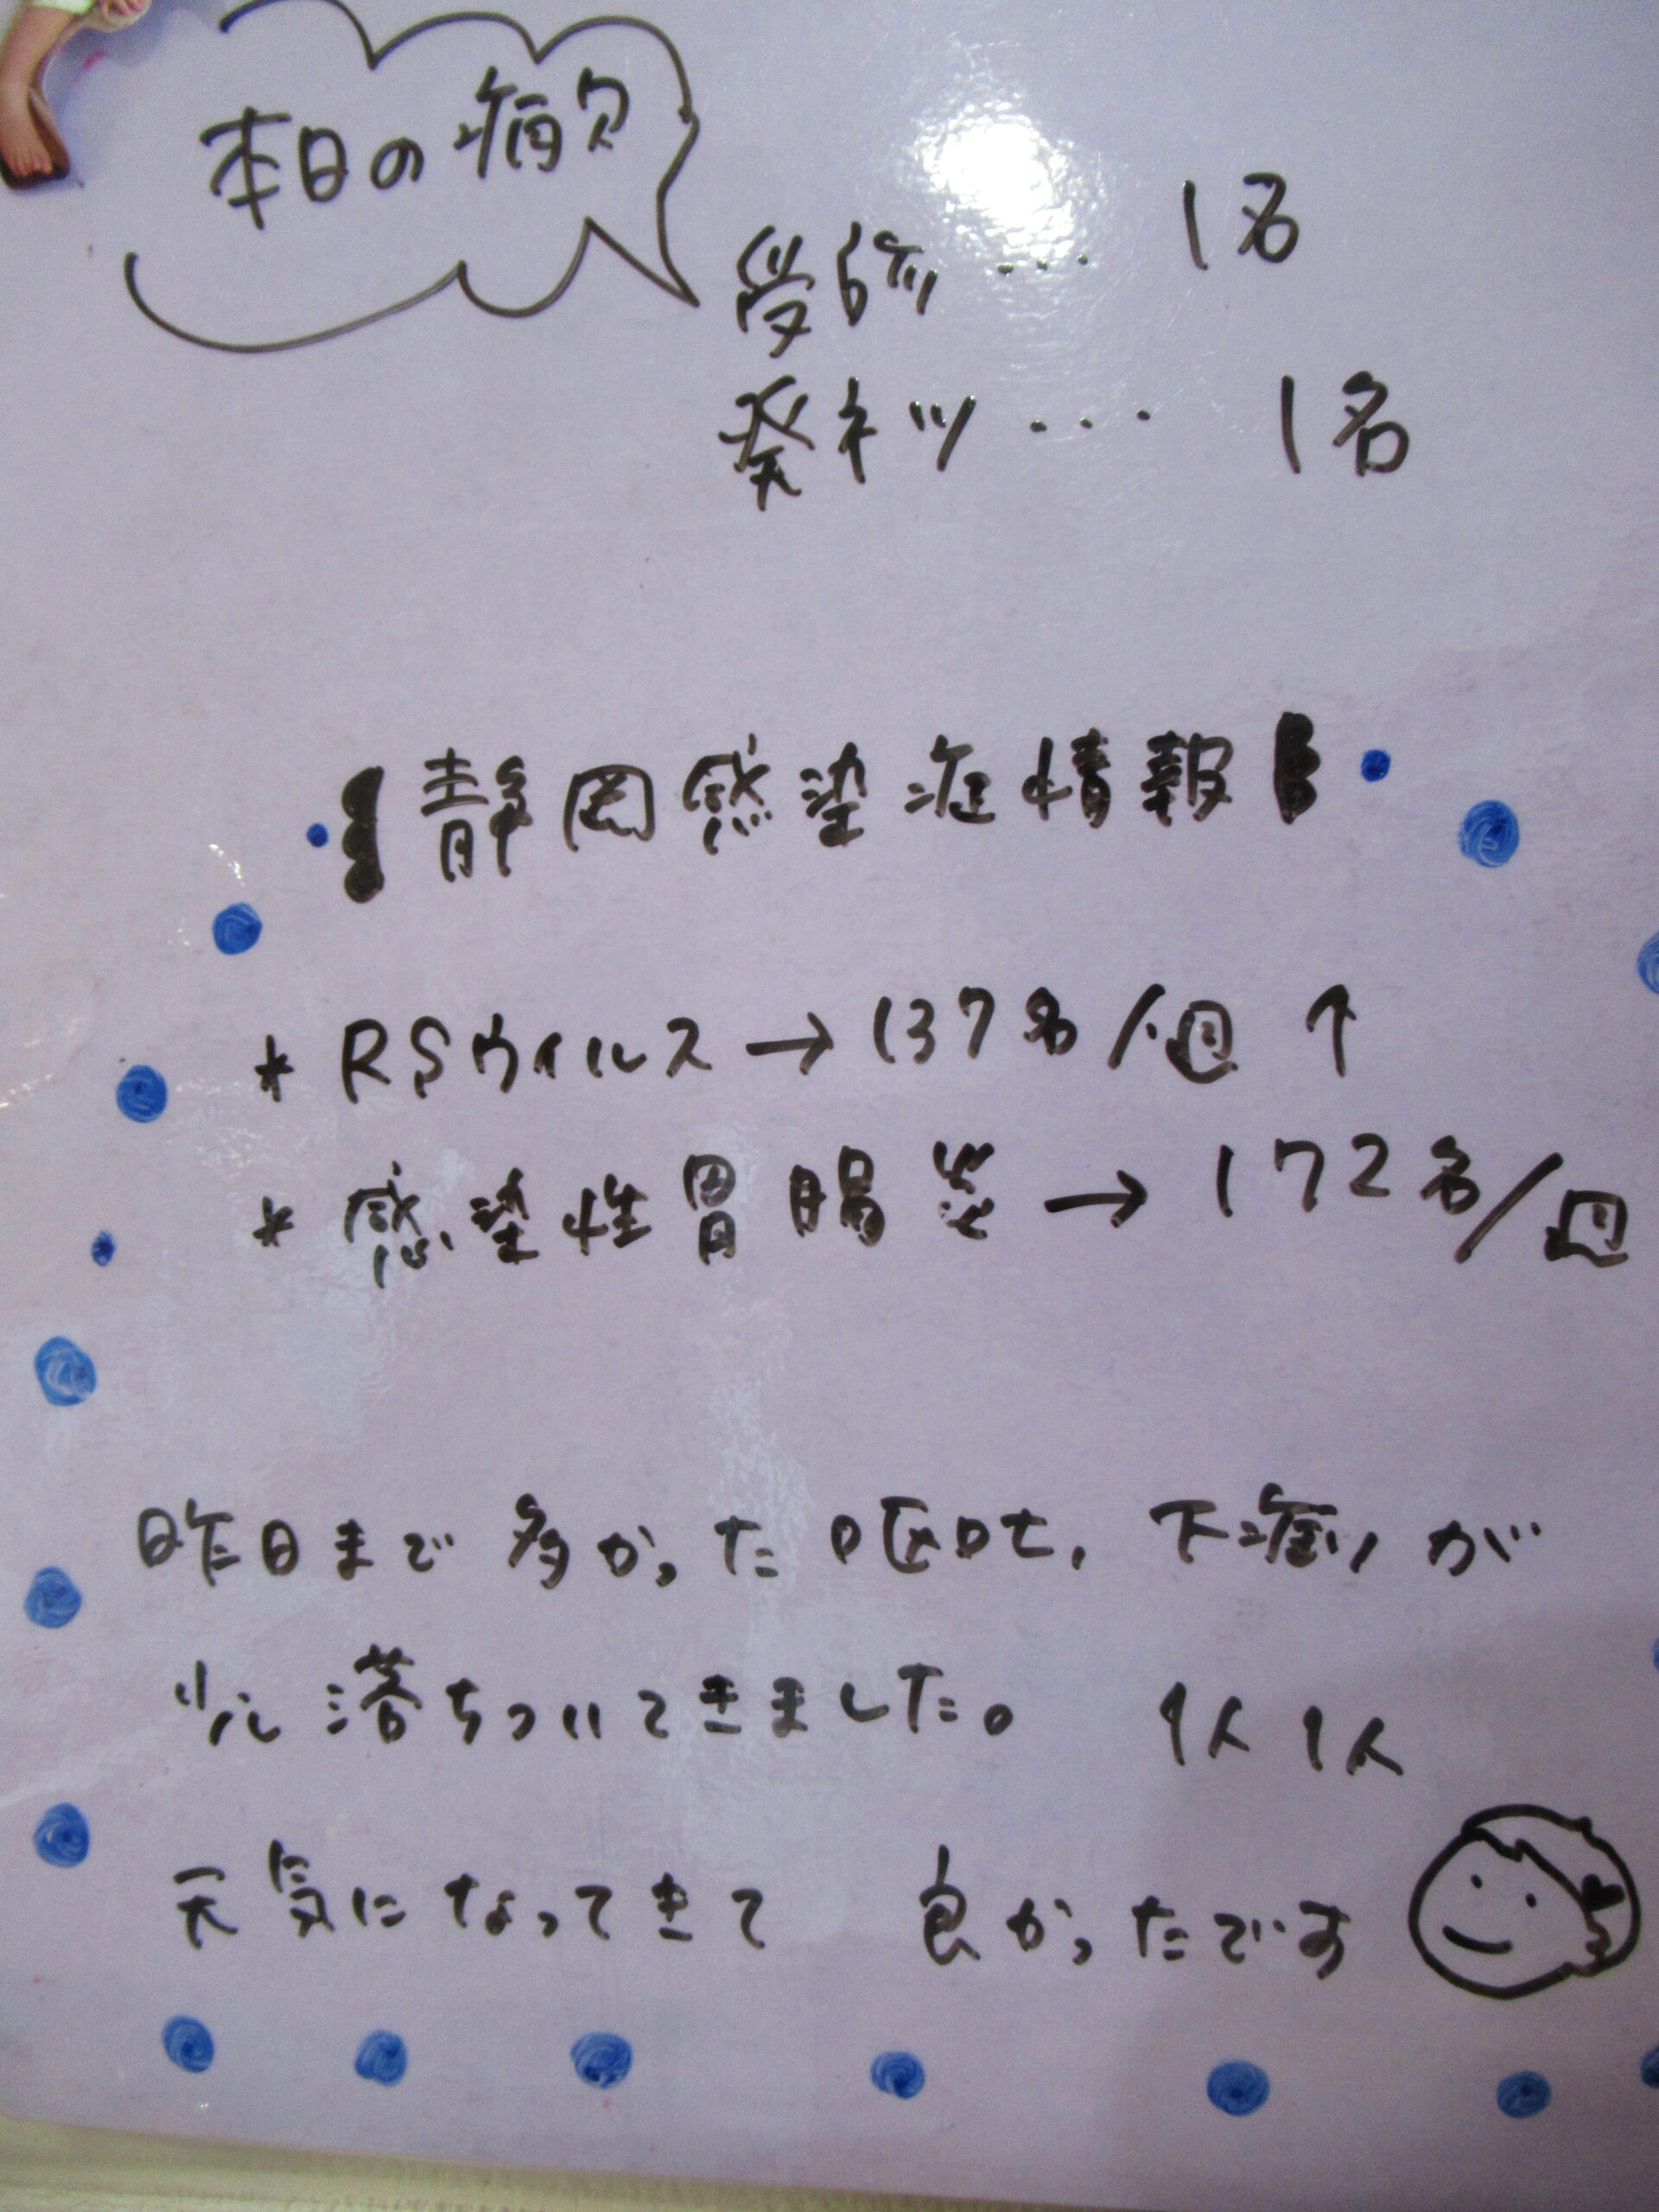 本日の病欠
受診 … 1名
発ネツ … 1名
【静岡感染症情報】
* RSウイルス → 137名/週 ↑
* 感染性胃腸炎 → 172名/週
昨日まで多かった嘔吐、下痢が
少し落ちついてきました。 1人1人
元気になってきて 良かったです